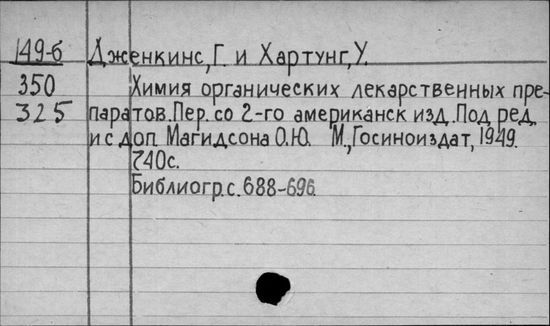 149-б Дженкинс, Г. и Хартунг, У.
350 Химия органических лекарственных пре-
325 паратов. Пер. со 2-го американск изд. Под ред.
и с доп. Магидсона О.Ю. М., Госиноиздат, 1949.
740с.
Библиогр. с. 688-696.